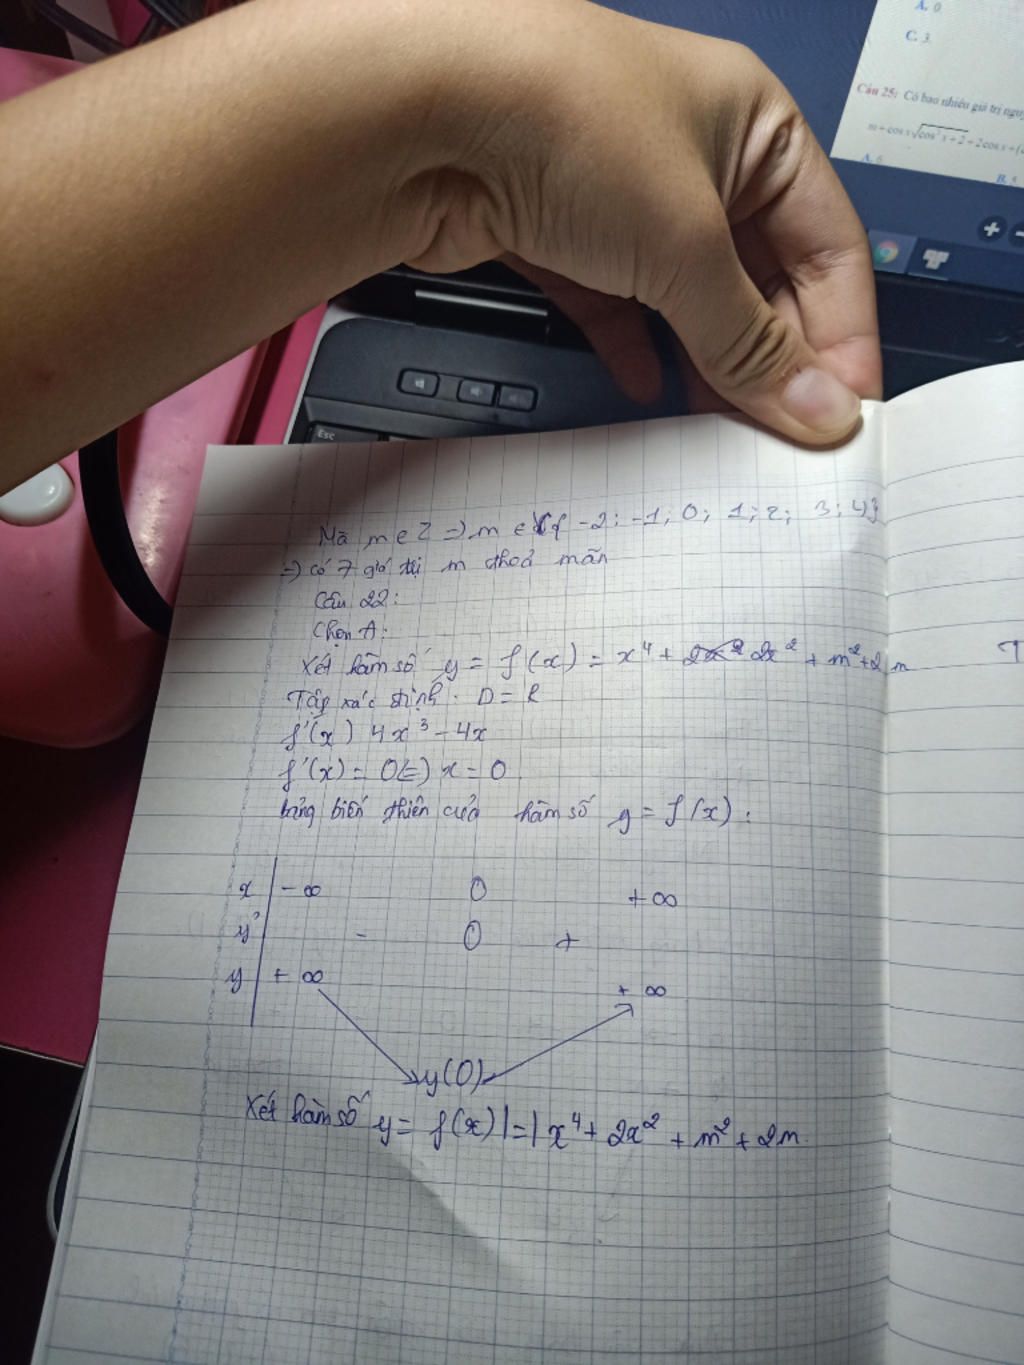 A. 0
C. 3.
Câu 25: Có bao nhiêu giá trị nguy
m + cos x√cos² x + 2 + 2cos x + (c
A. 6
B. 5
Esc
Mà m ∈ Z => m ∈ { -2; -1; 0; 1; 2; 3; 4}
=> có 7 giá trị m thoả mãn
Câu 22:
Chọn A:
Xét hàm số y = f(x) = x⁴ + 2x² + m² + 2m
Tập xác định: D = R
f'(x) 4x³ - 4x
f'(x) = 0 (=) x = 0
bảng biến thiên của hàm số y = f(x):
x -∞ 0 +∞
y' - 0 +
y +∞ +∞
y(0)
Xét hàm số y = f(x)|=| x⁴ + 2x² + m² + 2m